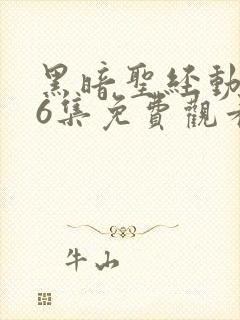 黑暗聖経動
6集免費觀看
牛山